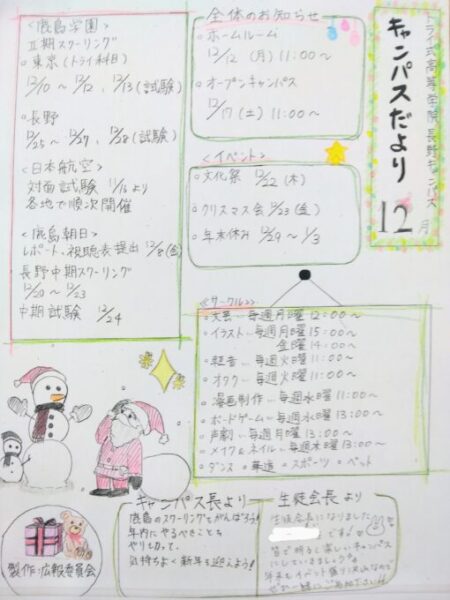 トライ式高等学院 長野キャンパス
キャンパスだより
12月
全体のお知らせ
○ホームルーム
12/12 (月) 11:00〜
○オープンキャンパス
12/17 (土) 11:00〜
<イベント>
○文化祭 12/22 (木)
○クリスマス会 12/23 (金)
○年末休み 12/29〜1/3
<鹿島学園>
Ⅱ期スクーリング
○東京(トライ科目)
12/10〜12/12、12/13(試験)
○長野
12/25〜12/27、12/28(試験)
<日本航空>
対面試験 より
各地で順次開催
<鹿島朝日>
レポート、視聴表提出 12/8(金)
長野中期スクーリング
12/20〜12/23
中期試験 12/24
<サークル>
○文芸…毎週月曜 12:00〜
○イラスト…毎週月曜 15:00〜
金曜 14:00〜
○軽音…毎週火曜 11:00〜
○オタク…毎週火曜 11:00〜
○漫画制作…毎週水曜 11:00〜
○ボードゲーム…毎週水曜 13:00〜
○声劇…毎週月曜 13:00〜
○メイク&ネイル…毎週木曜 13:00〜
○ダンス ○ ○スポーツ ○ペット
キャンパス長より
鹿島のスクーリングもがんばろう!
年内にやるべきことも
やりきって、
気持ちよく新年を迎えよう!
生徒会長より
生徒会長になりました
です
皆で明るく楽しいキャンパス
にしていきましょう
製作:広報委員会